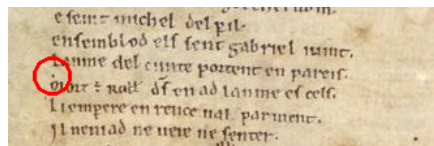 e seint michel del pil.
ensemblod els sent gabriel iuint.
lanme del cunte portent en pareis.
Morz ē Roll̄ d̄s en ad lanme es cels.
li empere en rence ual paruient.
Il neniad ne ueie ne senter.